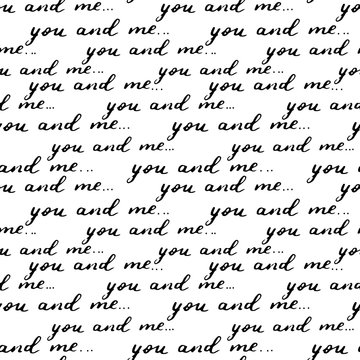 u and me... you and me... you
you and me... you and me...
me... you and me... you and me
u and me... you and me... yo
you and me... you and me...
d me... you and me... you and
ou and me... you and me... y
you and me... you and me...
and me... you and me... you a
u and me... you and me... you
you and me... you and me...
me... you and me... you and me
u and me... you and me... yo
you and me... you and me...
d me... you and me... you and
ou and me... you and me... y
you and me... you and me...
and me... you and me... you a